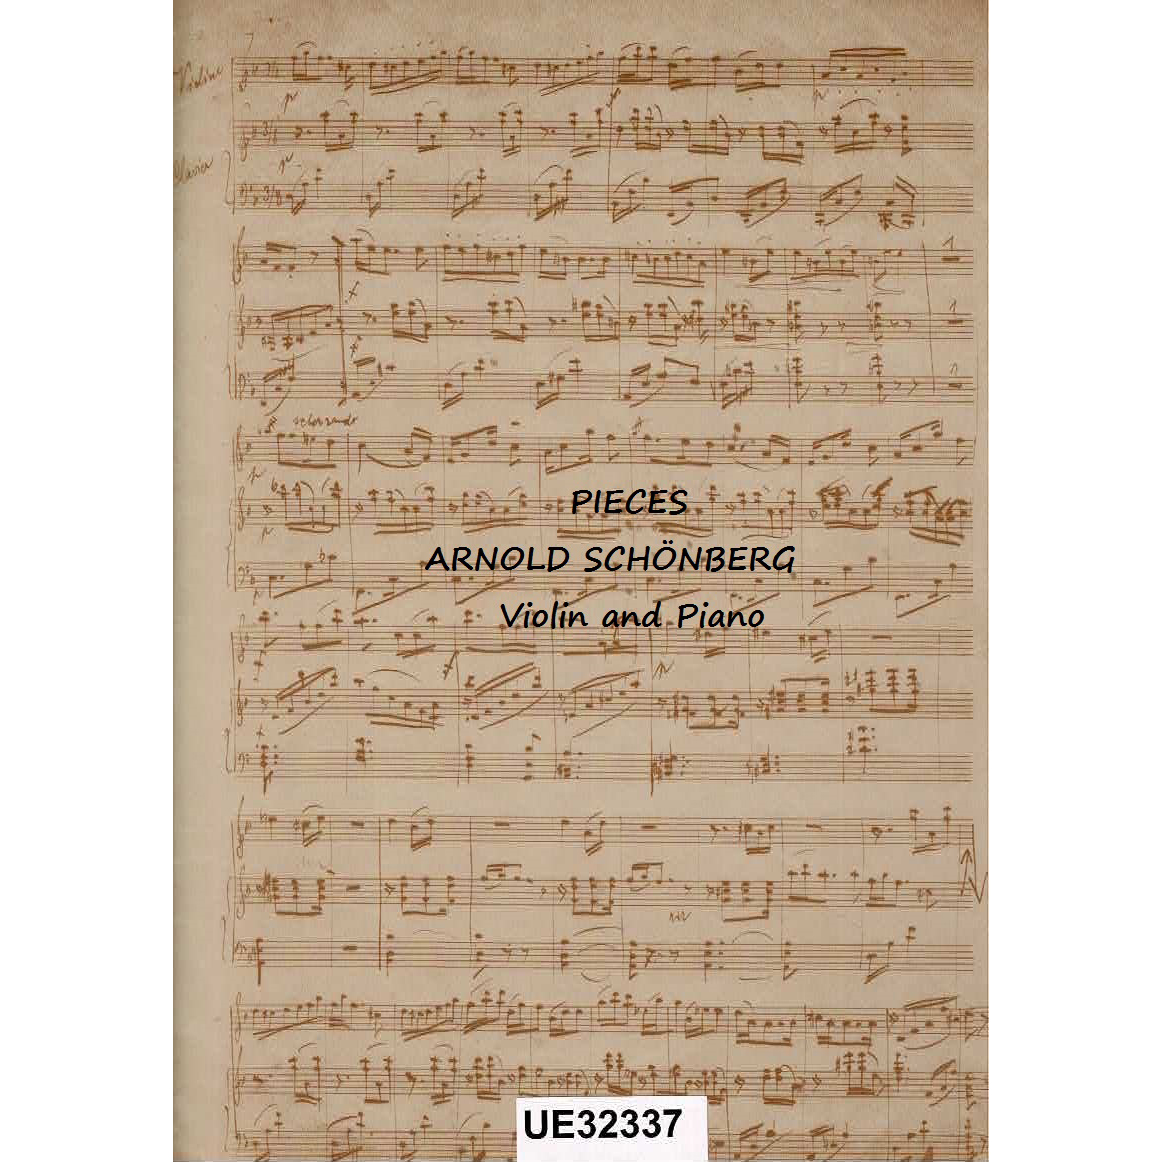 Violine
Clavier
scherzando
PIECES
ARNOLD SCHÖNBERG
Violin and Piano
UE32337